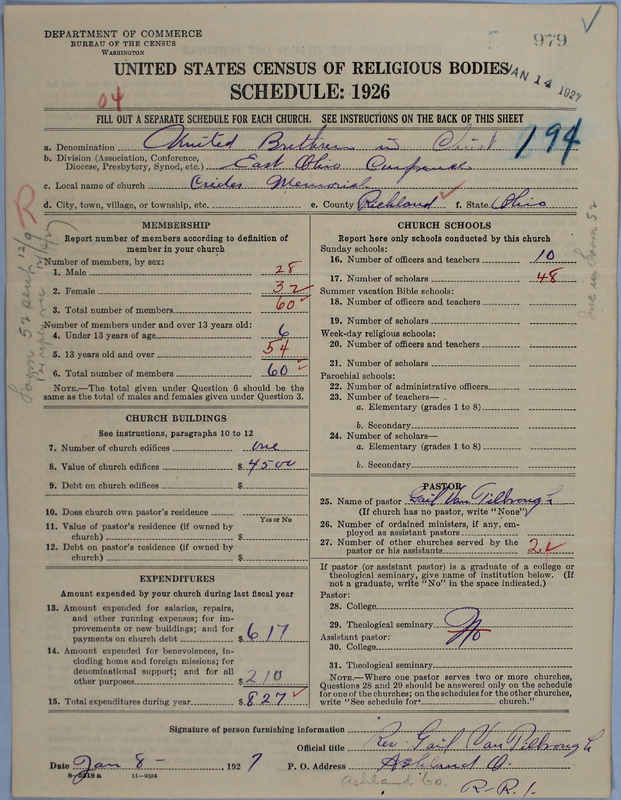 DEPARTMENT OF COMMERCE
BUREAU OF THE CENSUS
WASHINGTON
979
JAN 14 1927
UNITED STATES CENSUS OF RELIGIOUS BODIES
SCHEDULE: 1926
04
FILL OUT A SEPARATE SCHEDULE FOR EACH CHURCH. SEE INSTRUCTIONS ON THE BACK OF THIS SHEET
194
a. Denomination United Brethren in Christ
b. Division (Association, Conference,
Diocese, Presbytery, Synod, etc.) East Ohio Conference
c. Local name of church Criders Memorial
d. City, town, village, or township, etc. e. County Richland f. State Ohio
MEMBERSHIP
Report number of members according to definition of
member in your church
Number of members, by sex:
1. Male 28
2. Female 32
3. Total number of members. 60
Number of members under and over 13 years old:
4. Under 13 years of age 6
5. 13 years old and over 54
6. Total number of members 60
NOTE.—The total given under Question 6 should be the
same as the total of males and females given under Question 3.
CHURCH BUILDINGS
See instructions, paragraphs 10 to 12
7. Number of church edifices one
8. Value of church edifices $4500
9. Debt on church edifices $
10. Does church own pastor's residence?
Yes or No
11. Value of pastor's residence (if owned by
church) $
12. Debt on pastor's residence (if owned by
church) $
EXPENDITURES
Amount expended by your church during last fiscal year
13. Amount expended for salaries, repairs,
and other running expenses; for im-
provements or new buildings; and for
payments on church debt $617
14. Amount expended for benevolences, in-
cluding home and foreign missions; for
denominational support; and for all
other purposes $210
15. Total expenditures during year $827
CHURCH SCHOOLS
Report here only schools conducted by this church
Sunday schools:
16. Number of officers and teachers 10
17. Number of scholars 48
Summer vacation Bible schools:
18. Number of officers and teachers
19. Number of scholars
Week-day religious schools:
20. Number of officers and teachers
21. Number of scholars
Parochial schools:
22. Number of administrative officers
23. Number of teachers—
a. Elementary (grades 1 to 8)
b. Secondary
24. Number of scholars—
a. Elementary (grades 1 to 8)
b. Secondary
PASTOR
25. Name of pastor Gail Van Tilbrough
(If church has no pastor, write "None")
26. Number of ordained ministers, if any, em-
ployed as assistant pastors
27. Number of other churches served by the
pastor or his assistants 2
If pastor (or assistant pastor) is a graduate of a college or
theological seminary, give name of institution below. (If
not a graduate, write "No" in the space indicated.)
Pastor:
28. College
29. Theological seminary No
Assistant pastor:
30. College
31. Theological seminary
NOTE.—Where one pastor serves two or more churches,
Questions 28 and 29 should be answered only on the schedule
for one of the churches; on the schedules for the other churches,
write "See schedule for church."
Signature of person furnishing information Rev. Gail Van Tilbrough
Official title
Date Jan 8 - , 1927 P. O. Address Ashland O.
8-5518 a 11-9264
Ashland Co.
R.R. 1.